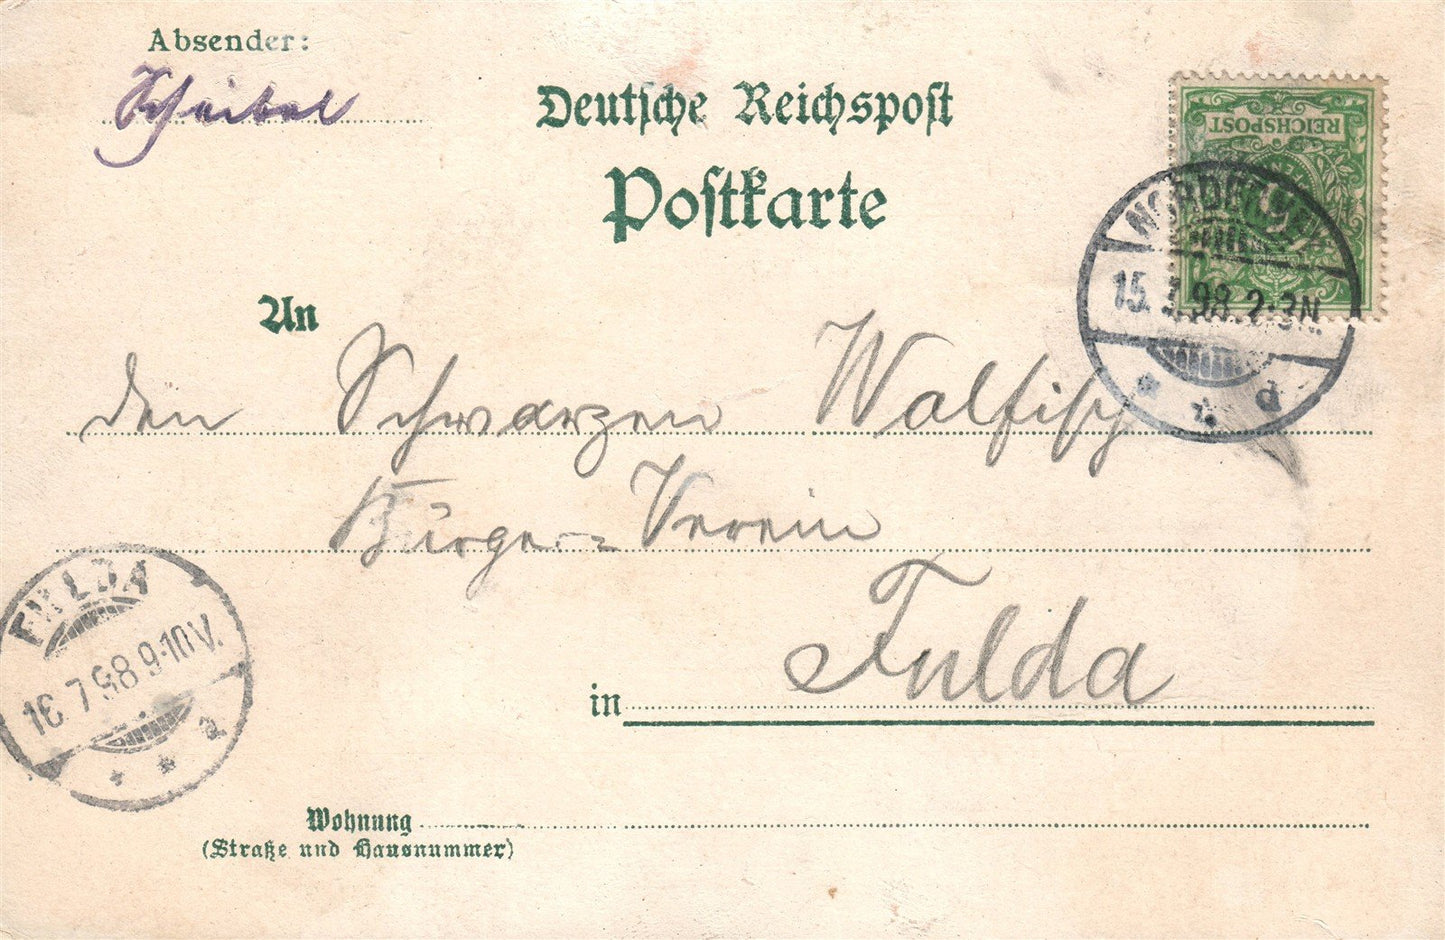 Absender:
Scheibel
Deutsche Reichspost
Postkarte
REICHSPOST
NORDERNEY
15. 7. 98. 2-3N.
d
An
den Schwarzen Walfisch
Bürger-Verein
in Fulda
FULDA
16 7 98 9-10V.
a
Wohnung
(Straße und Hausnummer)